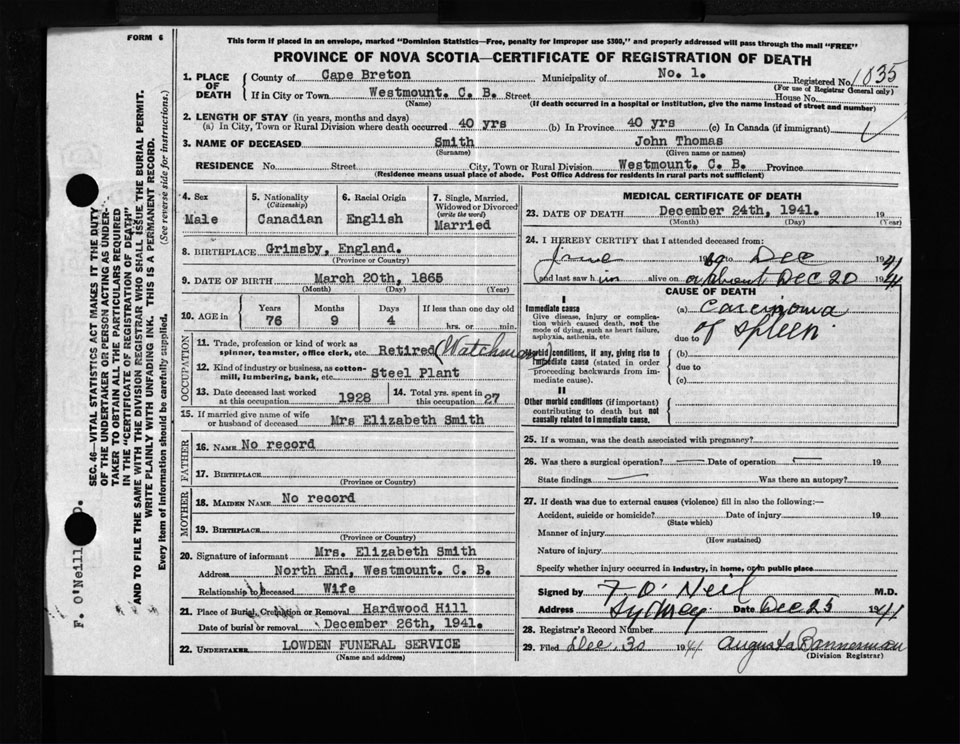 FORM 6
This form if placed in an envelope, marked "Dominion Statistics—Free, penalty for improper use $300," and properly addressed will pass through the mail "FREE"
PROVINCE OF NOVA SCOTIA—CERTIFICATE OF REGISTRATION OF DEATH
1. PLACE OF DEATH { County of Cape Breton Municipality of No. 1. Registered No. 1835
(For use of Registrar General only)
If in City or Town Westmount. C. B. Street House No.
(Name) (If death occurred in a hospital or institution, give the name instead of street and number)
2. LENGTH OF STAY (in years, months and days)
(a) In City, Town or Rural Division where death occurred 40 yrs (b) In Province 40 yrs (c) In Canada (if immigrant)
3. NAME OF DECEASED Smith John Thomas
(Surname) (Given name or names)
RESIDENCE No. Street City, Town or Rural Division Westmount. C. B. Province
(Residence means usual place of abode. Post Office Address for residents in rural parts not sufficient)
4. Sex
Male
5. Nationality
(Citizenship)
Canadian
6. Racial Origin
English
7. Single, Married, Widowed or Divorced
(write the word)
Married
8. BIRTHPLACE Grimsby, England.
(Province or Country)
9. DATE OF BIRTH March 20th, 1865
(Month) (Day) (Year)
10. AGE in Years Months Days If less than one day old
76 9 4 hrs. or min.
OCCUPATION
11. Trade, profession or kind of work as spinner, teamster, office clerk, etc. Retired (Watchman)
12. Kind of industry or business, as cotton-mill, lumbering, bank, etc. Steel Plant
13. Date deceased last worked at this occupation 1928
14. Total yrs. spent in this occupation 27
15. If married give name of wife or husband of deceased Mrs Elizabeth Smith
FATHER
16. NAME No record
17. BIRTHPLACE
(Province or Country)
MOTHER
18. MAIDEN NAME No record
19. BIRTHPLACE
(Province or Country)
20. Signature of informant Mrs. Elizabeth Smith
Address North End, Westmount. C. B.
Relationship to deceased Wife
21. Place of Burial, Cremation or Removal Hardwood Hill
Date of burial or removal December 26th, 1941.
22. UNDERTAKER LOWDEN FUNERAL SERVICE
(Name and address)
MEDICAL CERTIFICATE OF DEATH
23. DATE OF DEATH December 24th, 1941. 19
(Month) (Day) (Year)
24. I HEREBY CERTIFY that I attended deceased from:
June 19 to Dec 1941
and last saw him alive on about Dec 20 1941
CAUSE OF DEATH
I
Immediate cause
Give disease, injury or complication which caused death, not the mode of dying, such as heart failure, asphyxia, asthenia, etc.
(a) Carcinoma
due to of Spleen
Morbid conditions, if any, giving rise to immediate cause (stated in order proceeding backwards from immediate cause).
(b)
due to
(c)
II
Other morbid conditions (if important) contributing to death but not causally related to immediate cause.
25. If a woman, was the death associated with pregnancy?
26. Was there a surgical operation Date of operation 19
State findings Was there an autopsy?
27. If death was due to external causes (violence) fill in also the following:—
Accident, suicide or homicide? Date of injury 19
(State which)
Manner of injury
(How sustained)
Nature of injury
Specify whether injury occurred in industry, in home, or in public place
Signed by F. O'Neil M.D.
Address Sydney Date Dec 25 1941
28. Registrar's Record Number
29. Filed Dec. 30 1941 Augusta Bannerman
(Division Registrar)
SEC. 46—VITAL STATISTICS ACT MAKES IT THE DUTY
OF THE UNDERTAKER OR PERSON ACTING AS UNDER-
TAKER TO OBTAIN ALL THE PARTICULARS REQUIRED
IN THE "CERTIFICATE OF REGISTRATION OF DEATH"
AND TO FILE THE SAME WITH THE DIVISION REGISTRAR WHO SHALL ISSUE THE BURIAL PERMIT.
WRITE PLAINLY WITH UNFADING INK. THIS IS A PERMANENT RECORD.
Every item of information should be carefully supplied. (See reverse side for instructions.)
F. O'Neill